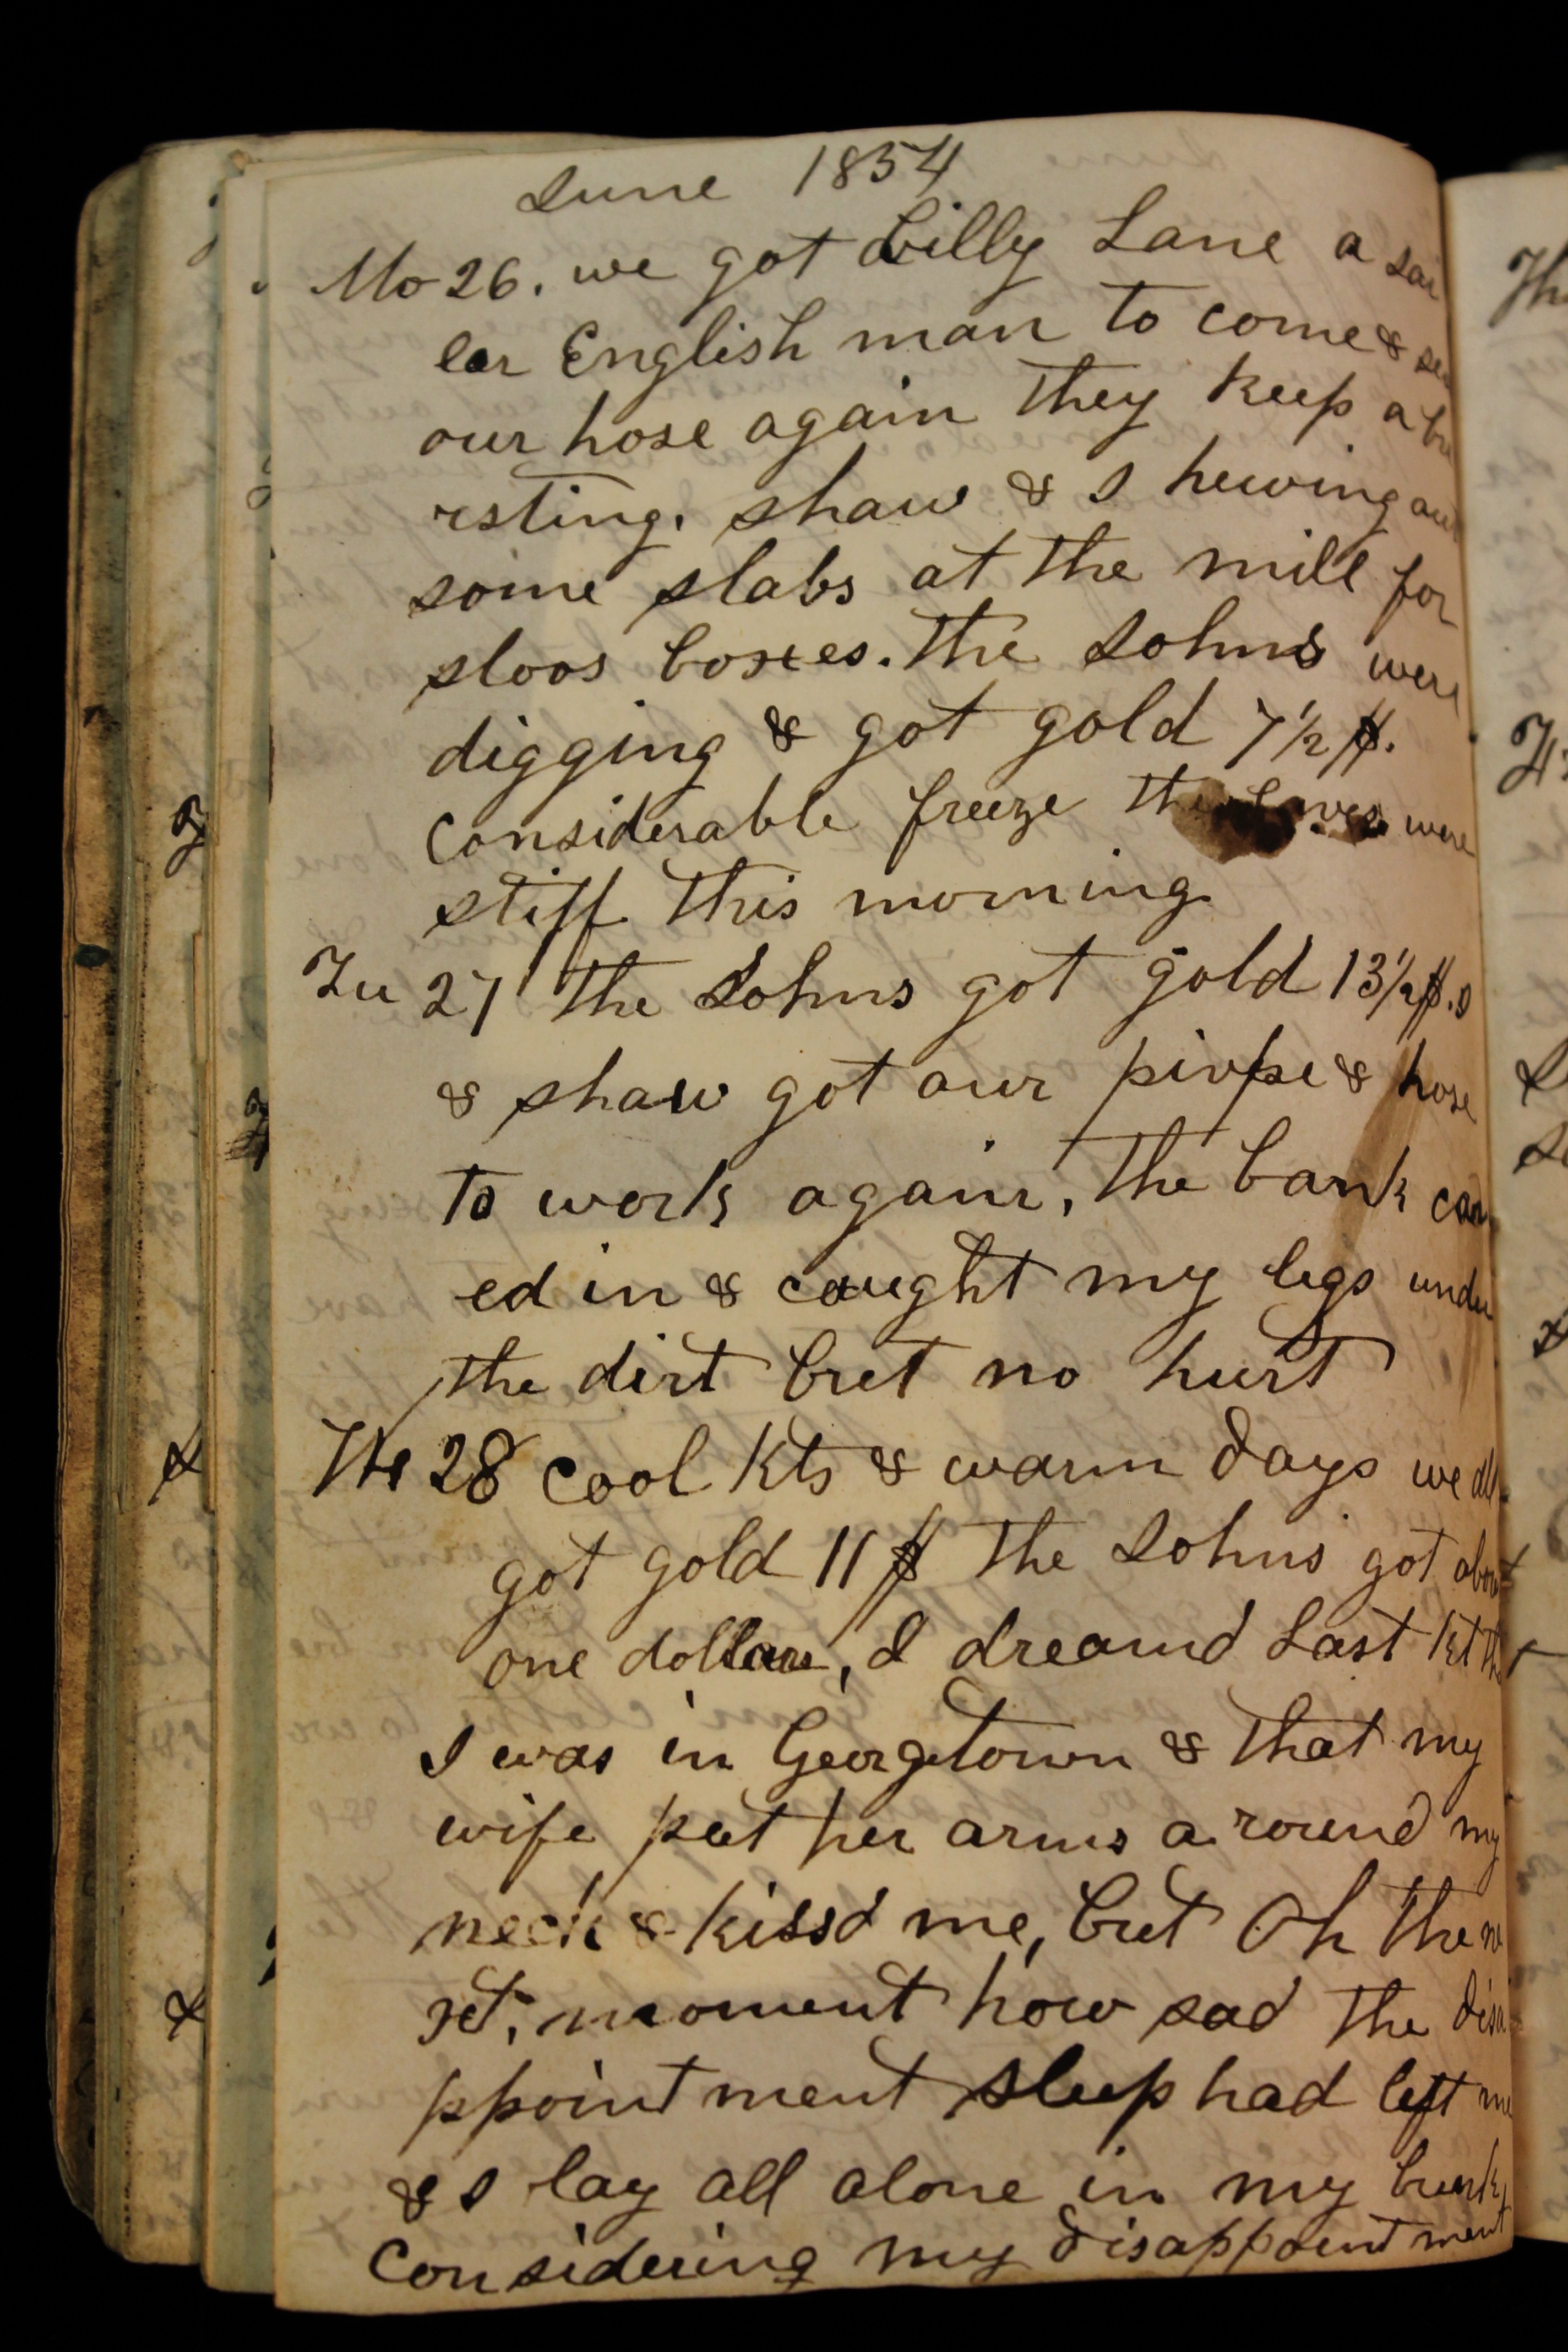 June 1854
Mo 26. we got Billy Lane a sai
ler English man to come & sew
our hose again they keep a bu
rsting. Shaw & I hewing out
some slabs at the mill for
sloos boxes. the Johns were
digging & got gold 7 1/2 $.
Considerable freeze the were
stiff this morning.
Tu 27 the Johns got gold 13 1/2 $. I
& Shaw got our pivpe & hose
to work again, the bank cav
ed in & caught my legs under
the dirt but no hurt
28 cool Kts & warm days we all
got gold 11 $ the Johns got about
one dollar, I dreamd Last Kt
I was in Georgetown & that my
wife put her arms a round my
neck & kissd me, but Oh the ne
xt, moment how sad the disa
ppointment sleep had left me
& I lay all alone in my bunk
Considering my disappointment